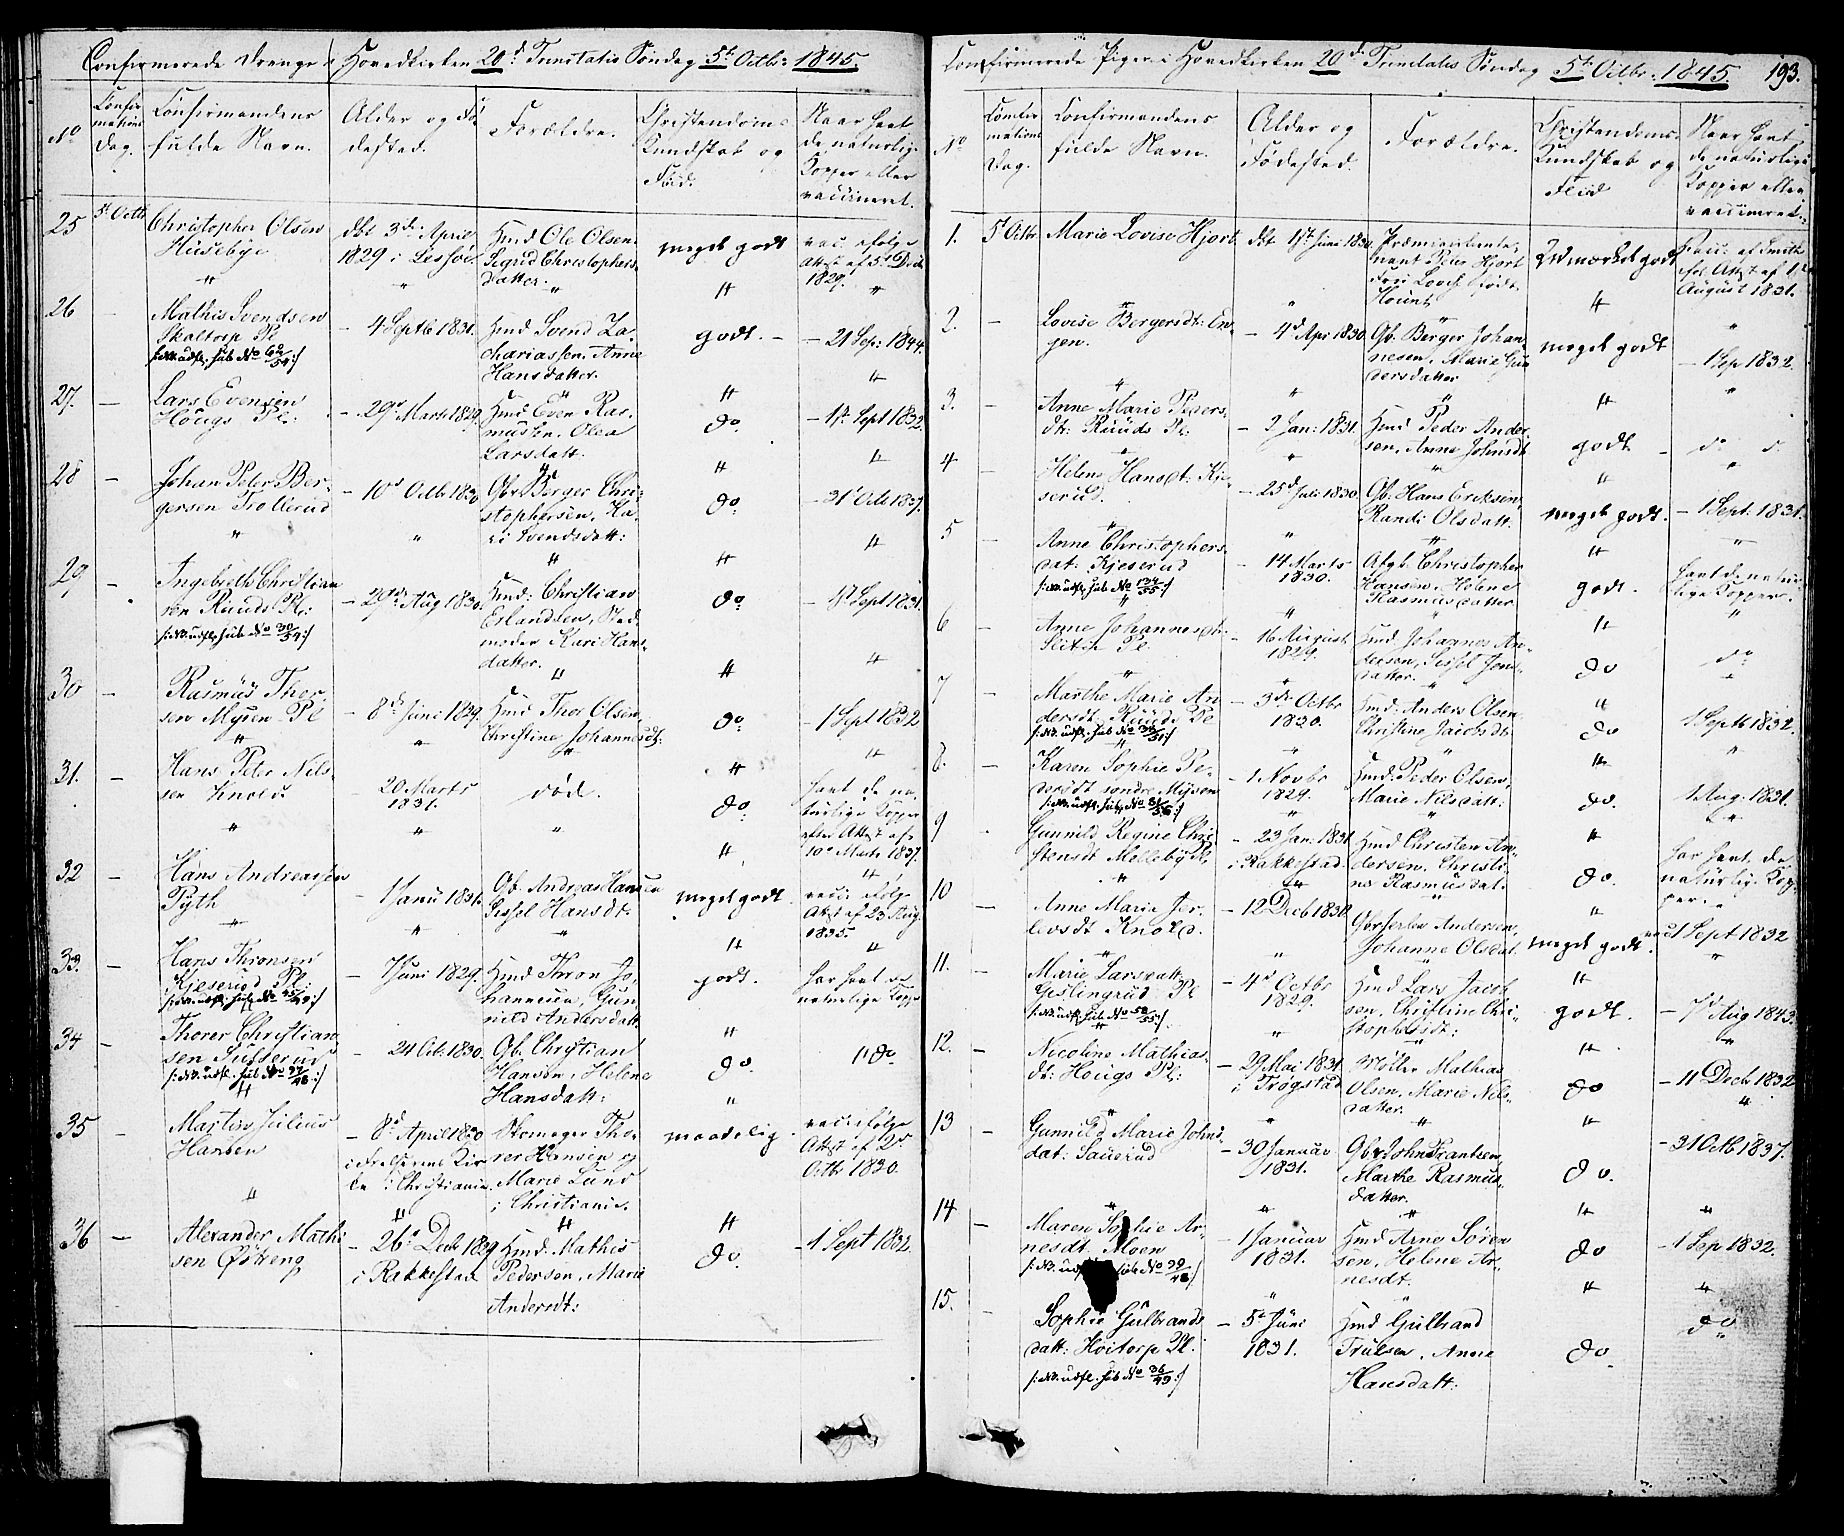 Confirmerede Drenge i Hovedkirken 20d Trinitatis Søndag 5t Octbr 1845.
No
Confir-
mations
Dag.
Confirmandens
fulde Navn.
Alder og Fø-
dested.
Forældre.
Christendoms
Kundskab og
Flid.
Naar havt
de naturlig
Kopper eller
vaccineret.
25 5t Octb Christopher Olsen
Husebye
dbt 3de April
1829 i
Hmd Ole Olsen
Sigrid Christophers
datter.
meget godt
vac. ifølge
Attst af 5t Dec
1829.
26 - Mathis Svendsen
Skaltorp Pl
/: NB. udfl. sub No 62/54 :/
- 4 Septb 1831.
Hmd Svend Za-
chariassen, Anne
Hansdatter.
godt.
- 21 Sep: 1844.
27. - Lars Evensen
Hougs Pl:
- 29d Marts 1829.
Hmd Even Ras-
mussen, Olea
Larsdatt.
do.
- 1t Sept 1832.
28 - Johan Peter Ber-
gersen Trollerud
- 10d Octb 1830
Gbr Berger Chri-
stophersen, Ka-
ri Svendsdatt:
do.
- 31 Octb 1837.
29 - Ingebreth Christian
sen Ruuds Pl:
/: NB. udfl. sub No 30/54 :/
- 29d Aug 1830.
Hmd: Christian
Erlandsen, Sted
moder Kari Hans
datter.
do.
- 1t Sept 1831.
30 - Rasmus Thor-
sen Mysen Pl
- 8d Juni 1829.
Hmd Thor Olsen
Christine Johannesdt:
do.
- 1 Sept 1832
31. - Hans Peter Nils-
sen Knold:
- 20 Marts
1831.
død.
do.
havt de na-
turlige Kopper
efter Attst af
10d Marts 1837.
32 - Hans Andreassen
Pyth
- 1 Janu 1831.
Gb. Andreas Hansen
Sissel Hansdt:
meget godt.
vacc: ifølge
Attst af 23 Aug
1835.
33. - Hans Thronsen
Kjeserud Pl:
- 7 Juni 1829.
Hmd Thron Jo-
hannesen, Gun-
nild Andersdatt.
godt.
har havt de
naturlige Kopp
34 - Thorer Christian
sen Susserud
- 24 Octb. 1830.
Gb. Christian
Hansen, Helene
Hansdatt:
do.
" do
35 - Martin Julius
Hansen
- 8d April 1830
i Frelserens Kir-
ke i Christiania.
Skomager Tho-
rer Hansen og
Marie Lund
i Christiania.
maadelig.
vacc: ifølge
Attst af 2d
Octb 1830.
36 - Alexander Mathi
sen Østeng
- 26d Decb 1829
i Rakkestad
Hmd: Mathis
Pedersen, Marie
Andersdt:
do.
- 1 Sept 1832.
Confirmerede Piger i Hovedkirken 20d Trinitatis Søndag 5t Octbr: 1845. 193.
No
Confir
mations
Dag.
Confirmandens
fulde Navn.
Alder og
Fødested.
Forældre.
Christendoms
Kundskab og
Flid
Naar havt
de naturlige
Kopper eller
vaccineret.
1. 5t Octbr. Marie Lovise Hjort
dbt 17t Juni 1830
Premierlieute-
nant Peter Hjort
Lovise født
Udmærket godt
Vacc: af Smith
Attst af 1t
August 1831.
2. - Lovise Bergersdt: En-
gen.
- 4d Apr 1830.
Gb. Berger Johan-
nesen, Marie Gun
dersdatter
meget godt
- 1 Sep 1832.
3. - Anne Marie Peders-
dt: Ruuds Pl:
- 2 Jan: 1831.
Hmd Peder Ander-
sen, Anne Johnsdt
godt
- do do
4 - Helene Hansdt: Kje-
serud
- 25d Juli 1830.
Gb. Hans Eriksen,
Randi Olsdatt:
meget godt.
- 1 Sept: 1831.
5 - Anne Christophers
dat. Kjeserud
/: NB. udfl. sub No 134/55 :/
- 14 Marts
1830.
Afgb. Christopher
Hansen, Helene
Rasmusdatter
godt.
havt de natur
lige Kopper.
6 - Anne Johannesdt
Slitu Pl
- 16 August
1829.
Hmd Johannes An-
dersen, Sissel Jens
datter.
do
do
7 - Marthe Marie An
dersdt Ruuds Pl
- 3de Octbr
1830.
Hmd. Anders Olsen
Christine Jacobsdt:
do
1 Septb 1832.
8. - Karen Sophie Pe-
dersdt søndre Mysen
- 1 Novbr
1829.
Hmd: Peder Olsen
Marie Nilsdatt:
do.
1 Aug: 1831.
9 - Gunnild Regine Chri
stensdt Melleby Pl.
- 23 Jan: 1831
i Rakkestad.
Hmd Christen An-
dersen, Christi-
ne Rasmusdat:
do.
har havt de
naturlig. Kop-
per.
10 - Anne Marie Jer-
levsdt Knold.
- 12 Decb 1830.
Gbr Jerlev Andersen
Johanne Olsdat
meget godt.
1 Sept 1832
11. - Marie Larsdatt:
Geslingrud Pl
- 4d Octbr
1829.
Hmd Lars Jacob
sen, Christine Chri-
stophersdt:
godt.
- 7d Aug 1843.
12. - Nicoline Mathias-
dt: Hougs Pl:
- 29 Mai 1831.
i Trøgstad
Møller Mathias
Olsen, Marie Nils-
datter.
do
- 11 Decb 1832
13 - Gunnild Marie Johns-
dat:
- 30 Januar
1831.
Gbr John Frantsen
Marthe Rasmus-
datter.
do.
- 31 Octb 1837.
14 - Maren Sophie Ar-
nesdt. Moen
/: NB. udfl sub No 39/48 :/
- 1 Januar
1831.
Hmd Arne Søren
sen, Helene Ar-
nesdt.
do
- 1 Sep 1832.
15. - Sophie Gulbrands
datt: Høitorp Pl.
/: NB. udfl. sub No 36/49 :/
- 5t Juni
1831.
Hmd Gulbrand
Trulsen, Anne
Hansdatt:
do.
do